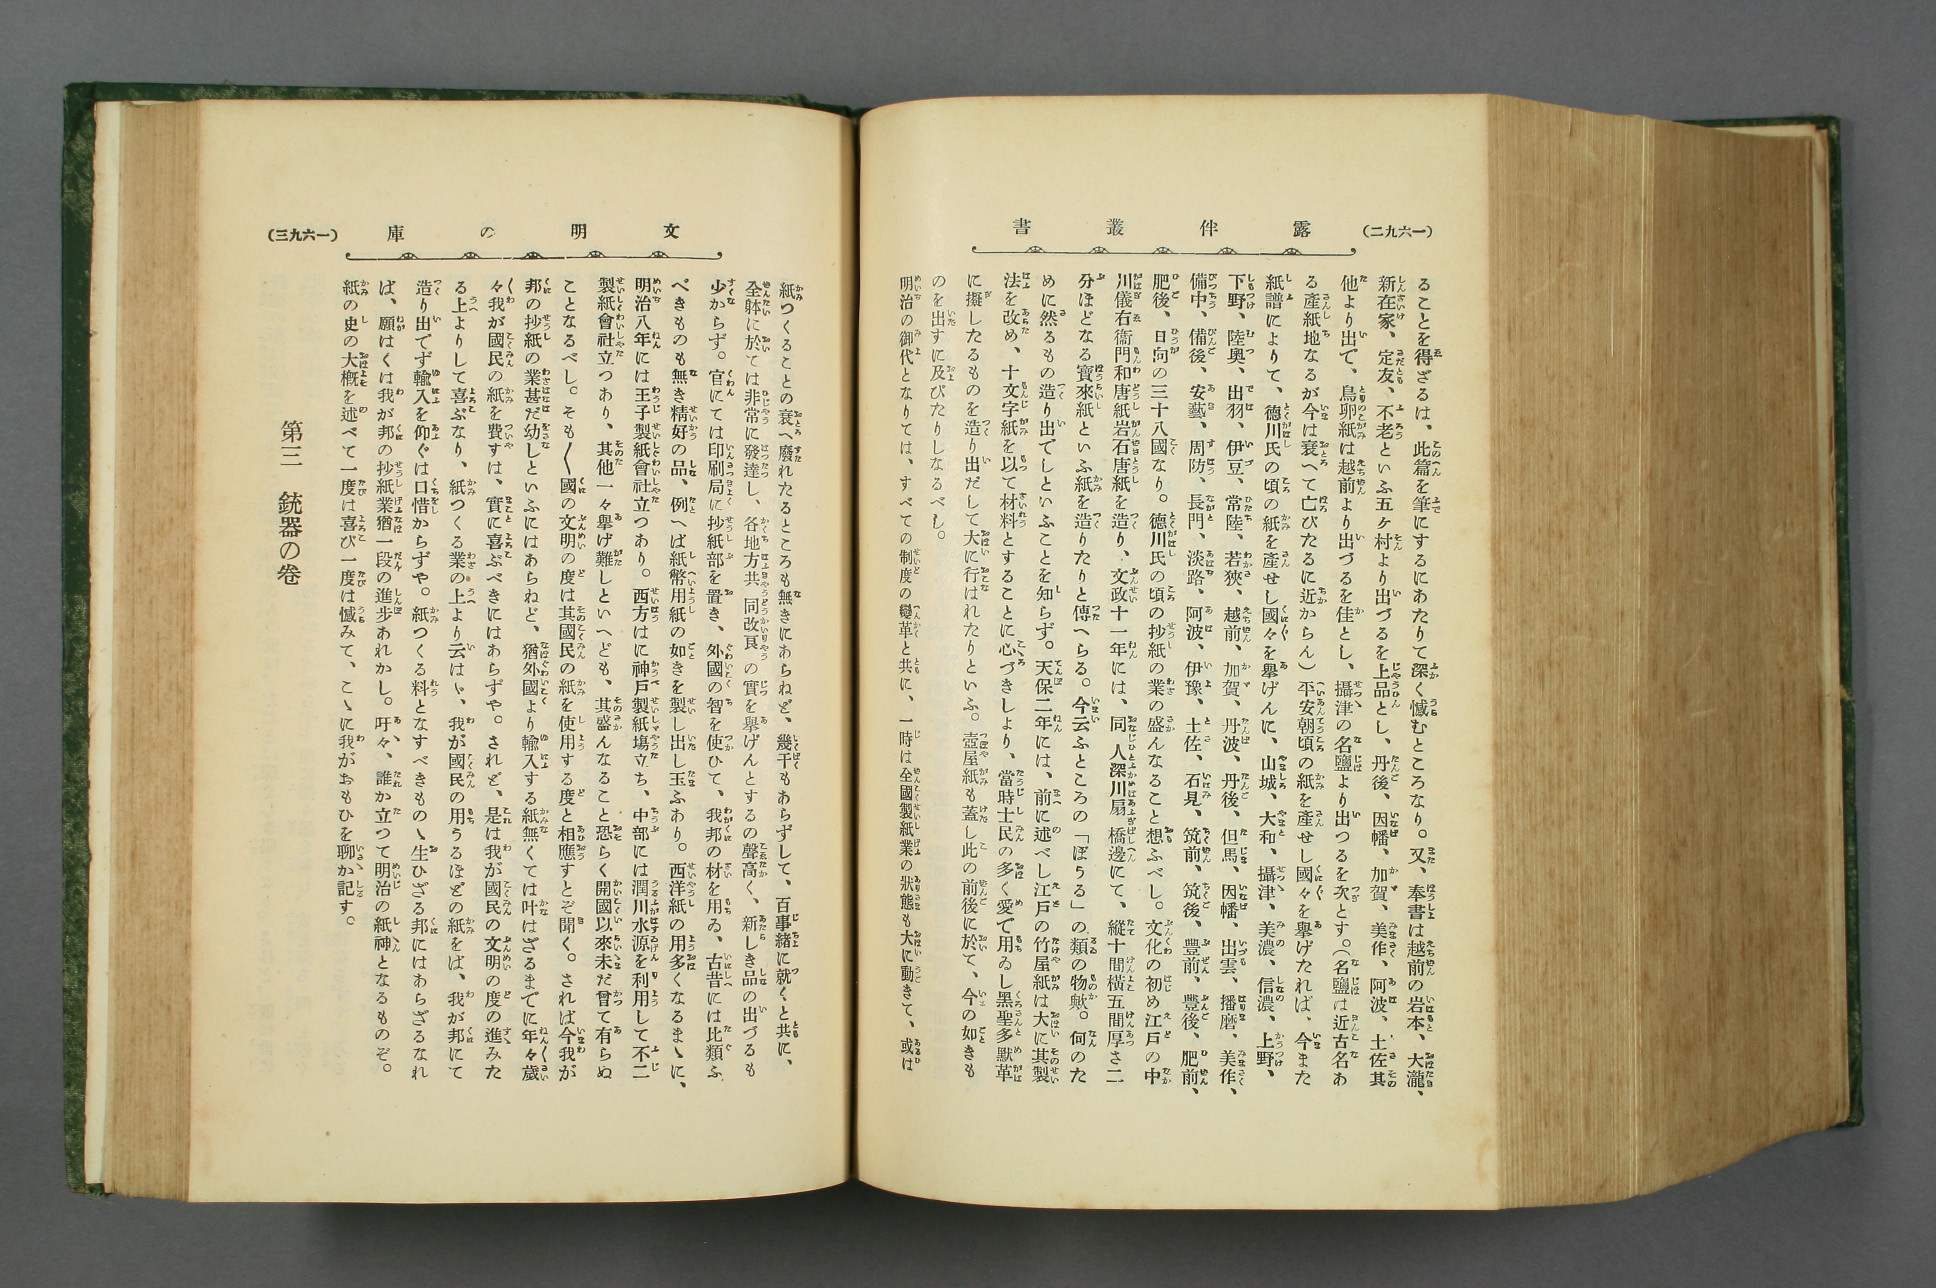 (一六九二)
露伴叢書
ることを得ざるは、此篇を筆にするにあたりて深く憾むところなり。又、奉書は越前の岩本、大瀧、
新在家、定友、不老といふ五ヶ村より出づるを上品とし、丹後、因幡、加賀、美作、阿波、土佐其
他より出で、鳥卵紙は越前より出づるを佳とし、攝津の名鹽より出つるを次とす。(名鹽は近古名あ
る產紙地なるが今は衰へて亡びたるに近からん)平安朝頃の紙を產せし國々を擧げたれば、今また
紙譜によりて、德川氏の頃の紙を產せし國々を擧げんに、山城、大和、攝津、美濃、信濃、上野、
下野、陸奧、出羽、伊豆、常陸、若狹、越前、加賀、丹波、丹後、但馬、因幡、出雲、播磨、美作、
備中、備後、安藝、周防、長門、淡路、阿波、伊豫、土佐、石見、筑前、筑後、豐前、豐後、肥前、
肥後、日向の三十八國なり。德川氏の頃の抄紙の業の盛んなること想ふべし。文化の初め江戸の中
川儀右衞門和唐紙岩石唐紙を造り、文政十一年には、同人深川扇橋邊にて、縱十間橫五間厚さ二
分ほどなる寶來紙といふ紙を造りたりと傳へらる。今云ふところの「ぼうる」の類の物歟。何のた
めに然るもの造り出でしといふことを知らず。天保二年には、前に述べし江戸の竹屋紙は大に其製
法を改め、十文字紙を以て材料とすることに心づきしより、當時士民の多く愛で用ゐし黑聖多默革
に擬したるものを造り出だして大に行はれたりといふ。壺屋紙も蓋し此の前後に於て、今の如きも
のを出すに及びたりしなるべし。
明治の御代となりては、すべての制度の變革と共に、一時は全國製紙業の狀態も大に動きて、或は
文明の庫
(一六九三)
紙つくることの衰へ廢れたるところも無きにあらねど、幾干もあらずして、百事緖に就くと共に、
全躰に於ては非常に發達し、各地方共同改良の實を擧げんとするの聲高く、新しき品の出づるも
少からず。官にては印刷局に抄紙部を置き、外國の智を使ひて、我邦の材を用ゐ、古昔には比類ふ
べきものも無き精好の品、例へば紙幣用紙の如きを製し出し玉ふあり。西洋紙の用多くなるまゝに、
明治八年には王子製紙會社立つあり。西方はに神戸製紙塲立ち、中部には潤川水源を利用して不二
製紙會社立つあり、其他一々擧げ難しといへども、其盛んなること恐らく開國以來未だ曾て有らぬ
ことなるべし。そも〱國の文明の度は其國民の紙を使用する度と相應すとぞ聞く。されば今我が
邦の抄紙の業甚だ幼しといふにはあらねど、猶外國より輸入する紙無くては叶はざるまでに年々歲
々我が國民の紙を費すは、實に喜ぶべきにはあらずや。されど、是は我が國民の文明の度の進みた
る上よりして喜ぶなり、紙つくる業の上より云はゞ、我が國民の用うるほどの紙をば、我が邦にて
造り出でず輸入を仰ぐは口惜からずや。紙つくる料となすべきものゝ生ひざる邦にはあらざるなれ
ば、願はくは我が邦の抄紙業猶一段の進步あれかし。吁々、誰か立つて明治の紙神となるものぞ。
紙の史の大槪を述べて一度は喜び一度は憾みて、こゝに我がおもひを聊か記す。
第三 銃器の卷